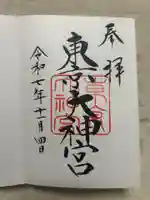 奉拝
東京大神宮
令和七年十一月四日